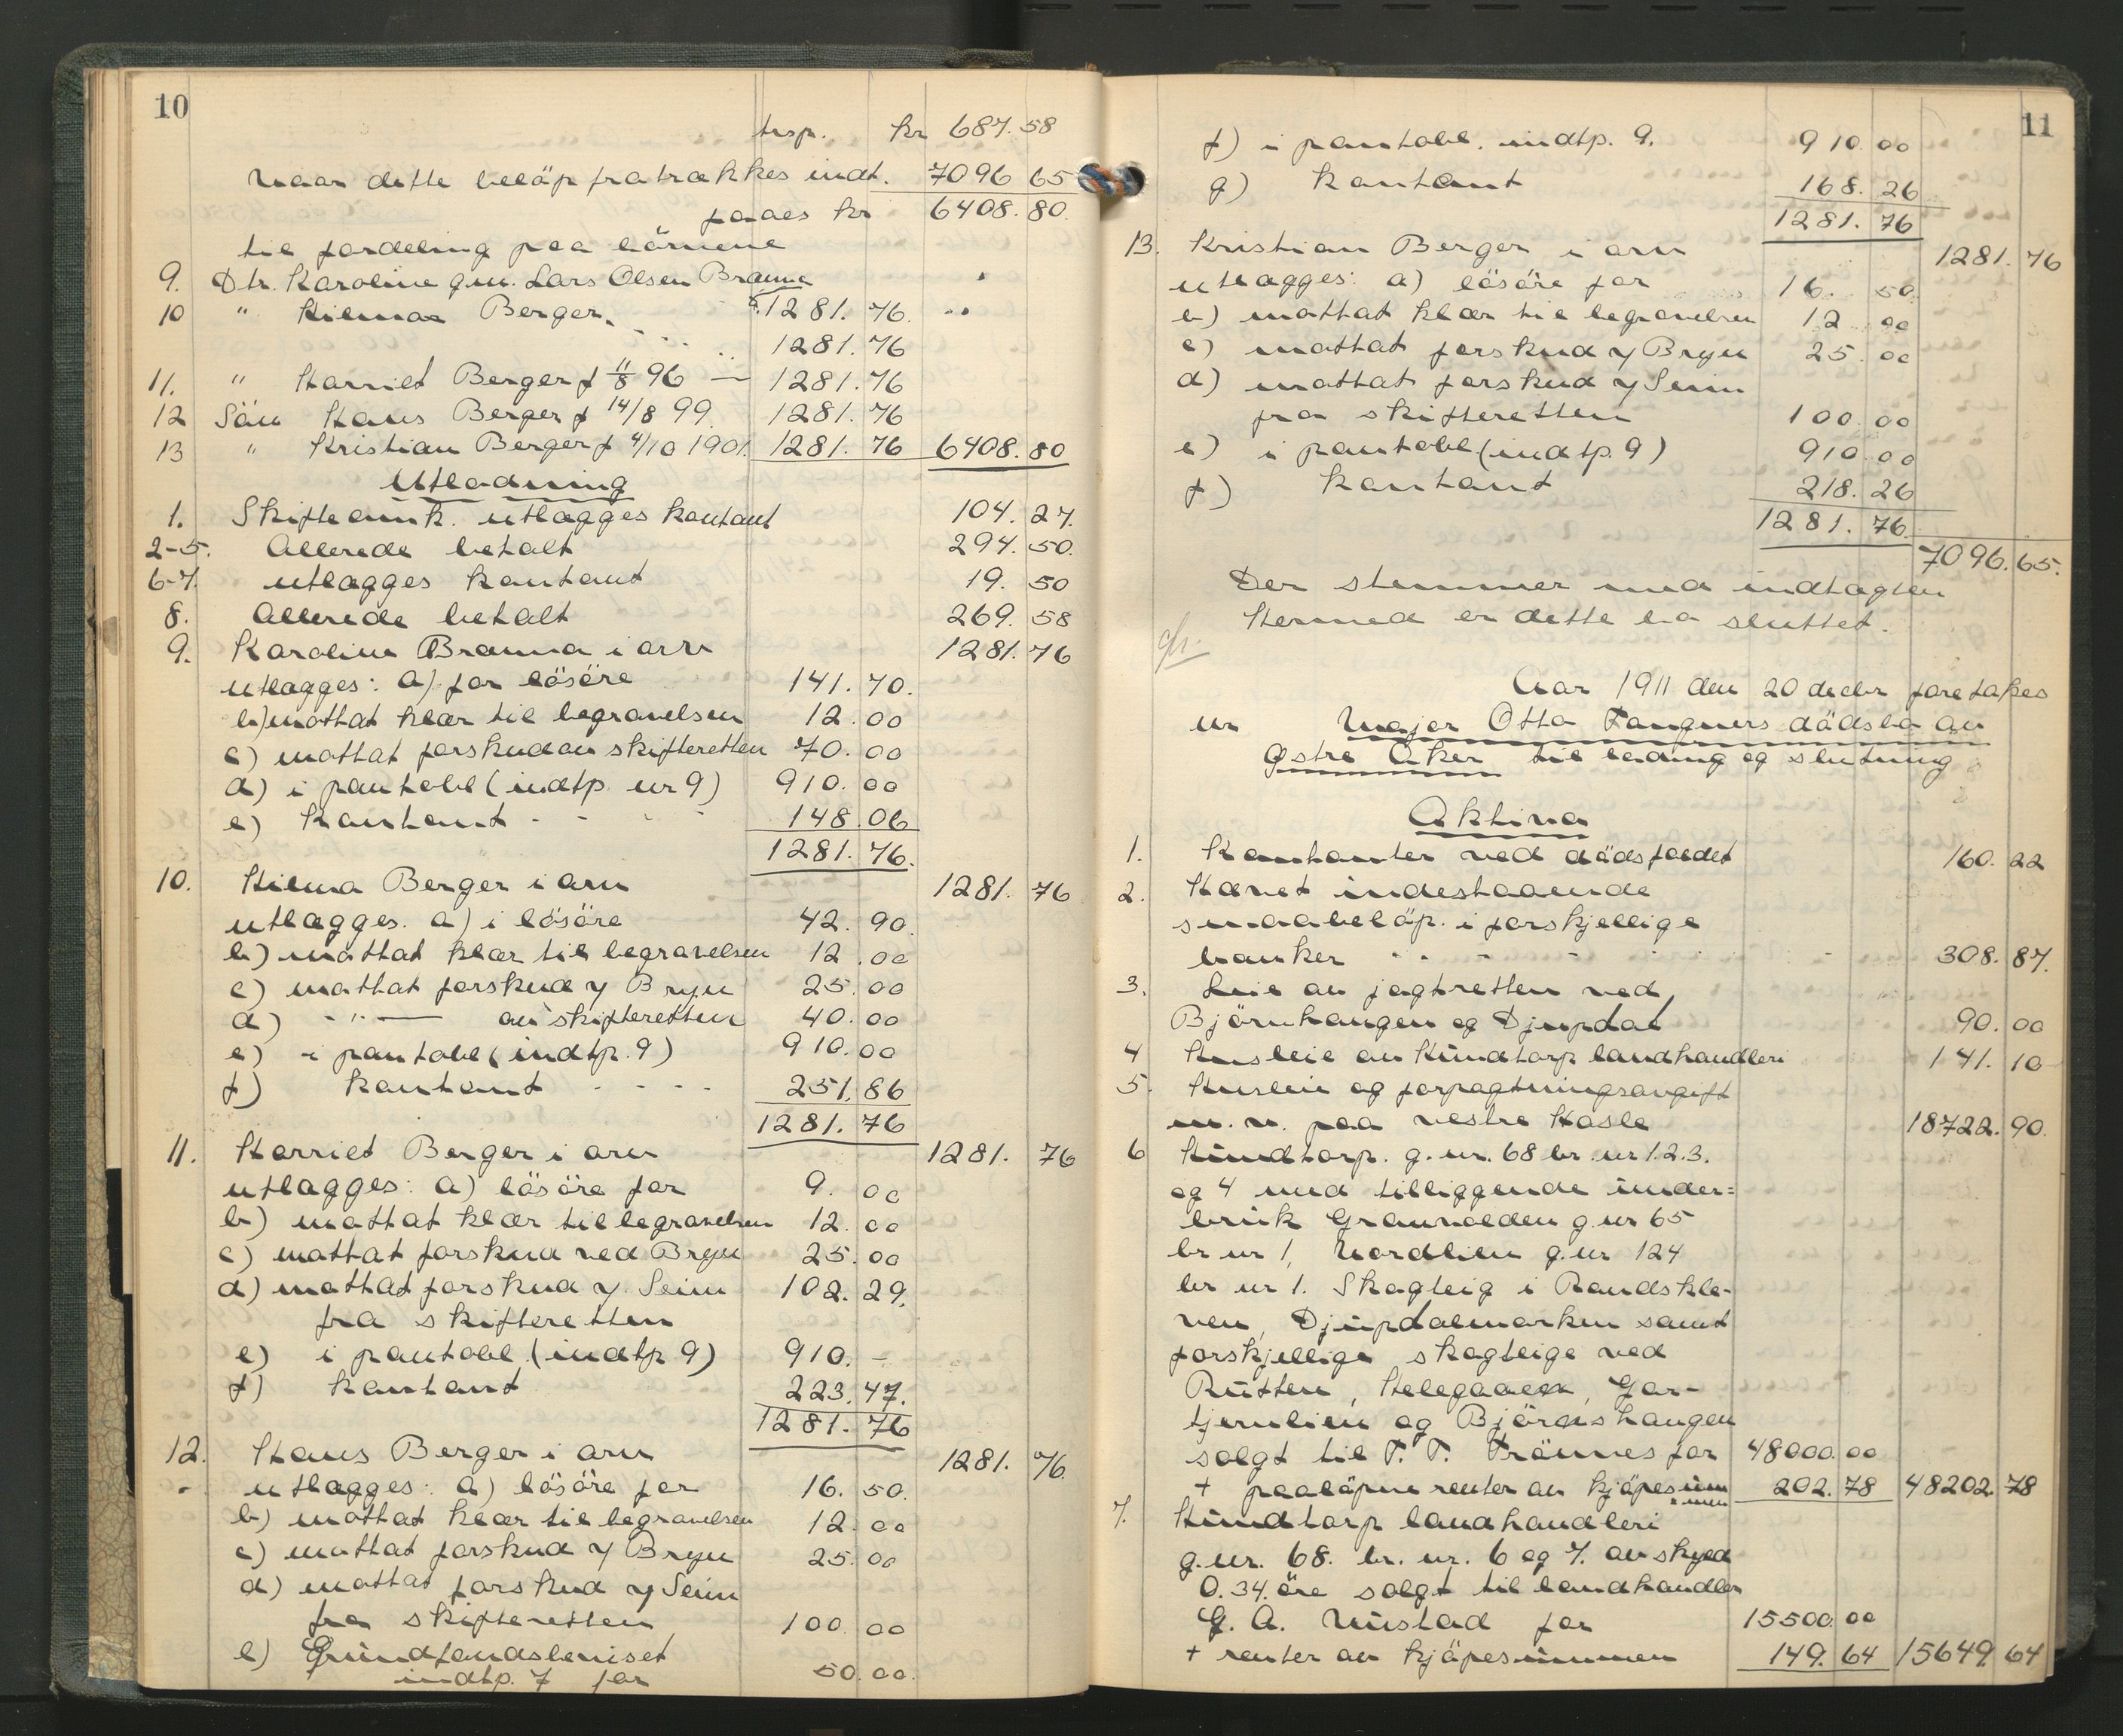 10
trsp. kr 687.58
Naar dette beløp fratrækkes indt. 7096 65
faaes kr 6408.80.
til fordeling paa børnene
9. Dtr. Karoline gm. Lars Olsen Branna
10 " Hilma Berger. 1281. 76.
1281. 76
11. " Harriet Berger f 11/8 96 — 1281. 76
12 Søn Hans Berger f 14/8 99. 1281. 76
13 " Kristian Berger f 4/10 1901. 1281. 76 6408. 80
Utlodning
1. Skifteomk. utlægges kontant 104. 27.
2-5. Allerede betalt 294. 50.
6-7. utlægges kontant 19. 50
8. Allerede betalt 269. 58
9. Karoline Branna i arv 1281. 76
utlægges: a) for løsøre 141. 70.
b) mottat klær til begravelsen 12. 00
c) mottat forskud av skifteretten 70. 00
d) i pantobl (indtp nr 9) 910. 00
e) kontant - - - - 148. 06
1281. 76.
10. Hilma Berger i arv 1281. 76
utlægges. a) i løsøre 42. 90.
b) mottat klær til begravelsen 12. 00
c) mottat forskud v Bryn 25. 00
d) - " — av skifteretten 40. 00
e) i pantobl (indtp. 9) 910. 00
f) kontant - - - - 251. 86
1281. 76
11. Harriet Berger i arv 1281. 76
utlægges: a) løsøre for 9. 00
b) mottat klær til begravelsen 12. 00
c) mottat forskud ved Bryn 25. 00
d) mottat forskud v. Seim 102. 29.
fra skifteretten
e) i pantobl. (indtp 9) 910. -
f) kontant 223. 47.
1281. 76
12. Hans Berger i arv 1281. 76.
utlægges: a) løsøre for 16. 50.
b) mottat klær til begravelsen 12. 00
c) mottat forskud v Bryn 25. 00
d) mottat forskud v Seim
fra skifteretten 100. 00
e) Grundfondsbeviset
indtp. 7 for 50. 00.
11
f) i pantobl. indtp. 9. 910. 00
g) kontant 168. 26
1281. 76
13. Kristian Berger i arv 1281. 76
utlægges: a) løsøre for 16. 50.
b) mottat klær til begravelsen 12 00
c) mottat forskud v Bryn 25. 00
d) mottat forskud v Seim
fra skifteretten 100. 00
e) i pantobl (indtp. 9) 910. 00
f) kontant 218. 26
1281. 76.
7096. 65.
Der stemmer med indtægten
Hermed er dette bo sluttet.
Aar 1911 den 20 decbr foretakes
nr Major Otto Fangners dødsbo av
Østre Aker til lodning og slutning
Aktiva
1. Kontanter ved dødsfaldet 160. 22
2. Hævet indestaaende
smaabeløp. i forskjellige
banker - - - - 308. 87.
3. Leie av jagtretten ved
Bjørnhaugen og Djupdal 90. 00
4 Husleie av Hundtorp landhandleri 141. 10
5. Husleie og forpagtningsavgift
m. v. paa vestre Hasle 18722. 90.
6 Hundtorp. g. nr. 68 br. nr 1.2.3.
og 4 med tilliggende under=
bruk Graunolden g. nr 65
br nr 1, Nordlien g. nr 124
br nr 1. Skogteig i Randskle-
ven, Djupdalmarken samt
forskjellige skogteige ved
Rutten, Helegaaen, Gor-
tjernlien og Bjørnshaugen
solgt til T. T. Trønnes for 48000. 00
+ paaløpne renter av kjøpesum
men 202. 78 48202. 78
7. Hundtorp landhandleri
g. nr. 68. br. nr. 6 og 7. av skyld
0. 34. øre solgt til landhandler
G. A. Nustad for 15500. 00
+ renter av kjøpesummen 149. 64 15649. 64